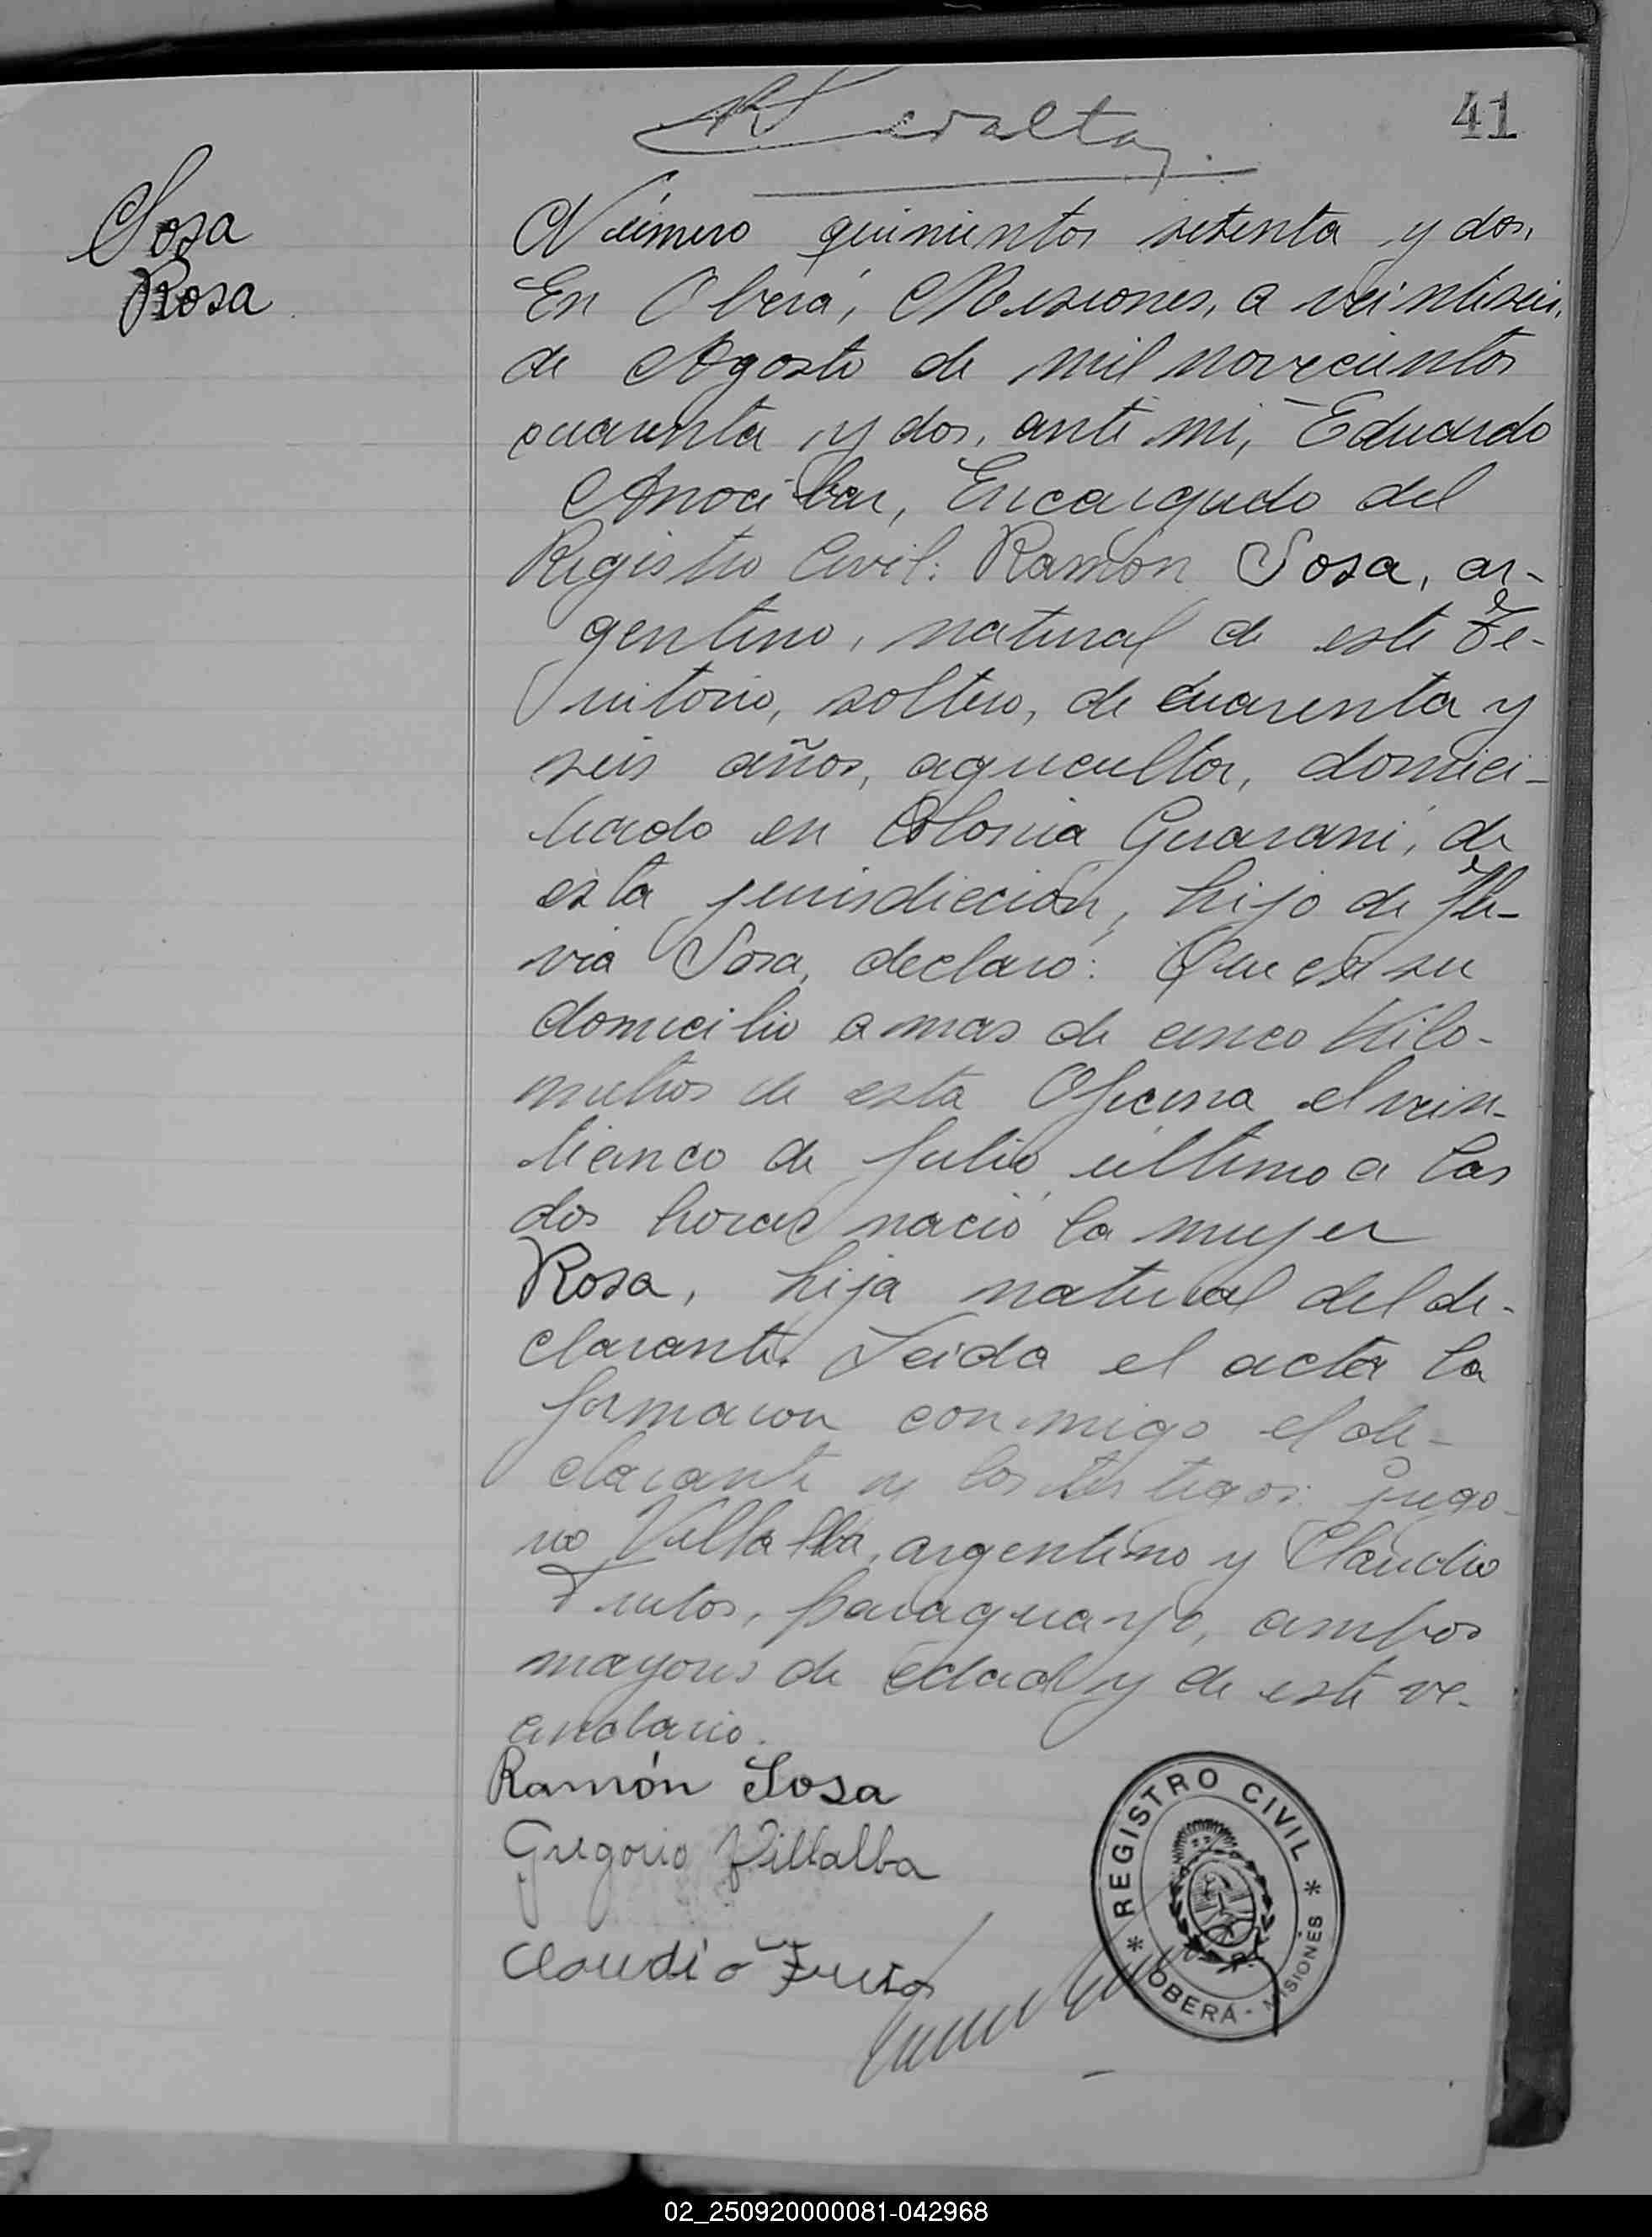 41
Peralta
Sosa
Rosa
Número quinientos setenta y dos.
En Oberá, Misiones, a veintiseis,
de Agosto de mil novecientos
cuarenta y dos, ante mi, Eduardo
Anocibar, Encargado del
Registro Civil: Ramón Sosa, ar-
gentino, natural de este Te-
rritorio, soltero, de cuarenta y
seis años, agricultor, domici-
liado en Colonia Guaraní, de
esta jurisdicción, hijo de
Sosa, declaró: Que en su
domicilio a mas de cinco kilo-
metros de esta Oficina el vein-
ticinco de Julio último a las
dos horas nació la mujer
Rosa, hija natural del de-
clarante. Leida el acta la
firmaron conmigo el de-
clarante y los testigos:
Villalba, argentino y Claudio
Frutos, paraguayo, ambos
mayores de edad y de este ve-
cindario.
Ramón Sosa
Gregorio Villalba
Claudio Frutos
* REGISTRO CIVIL *
OBERÁ - MISIONES
02_250920000081-042968